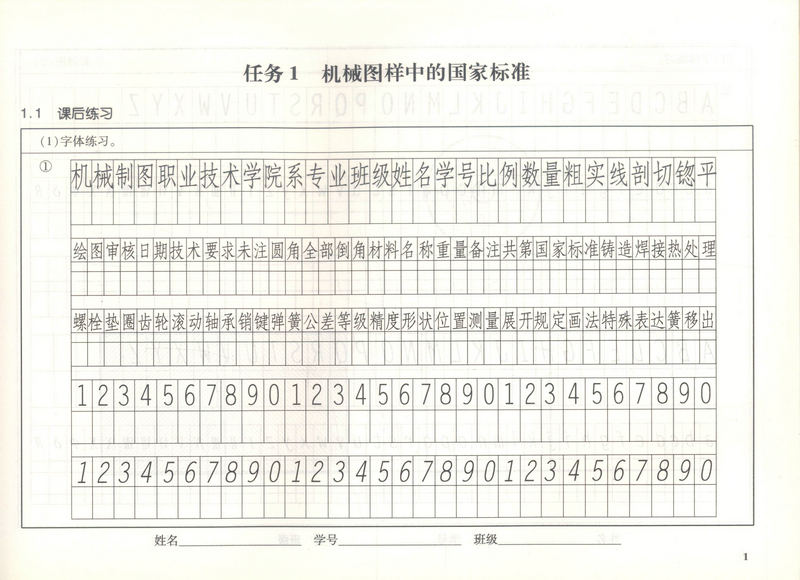 任务1 机械图样中的国家标准
1.1 课后练习
(1)字体练习。
①
机械制图职业技术学院系专业班级姓名学号比例数量粗实线剖切锪平
绘图审核日期技术要求未注圆角全部倒角材料名称重量备注共第国家标准铸造焊接热处理
螺栓垫圈齿轮滚动轴承销键弹簧公差等级精度形状位置测量展开规定画法特殊表达簧移出
123456789012345678901234567890
123456789012345678901234567890
姓名 学号 班级
1